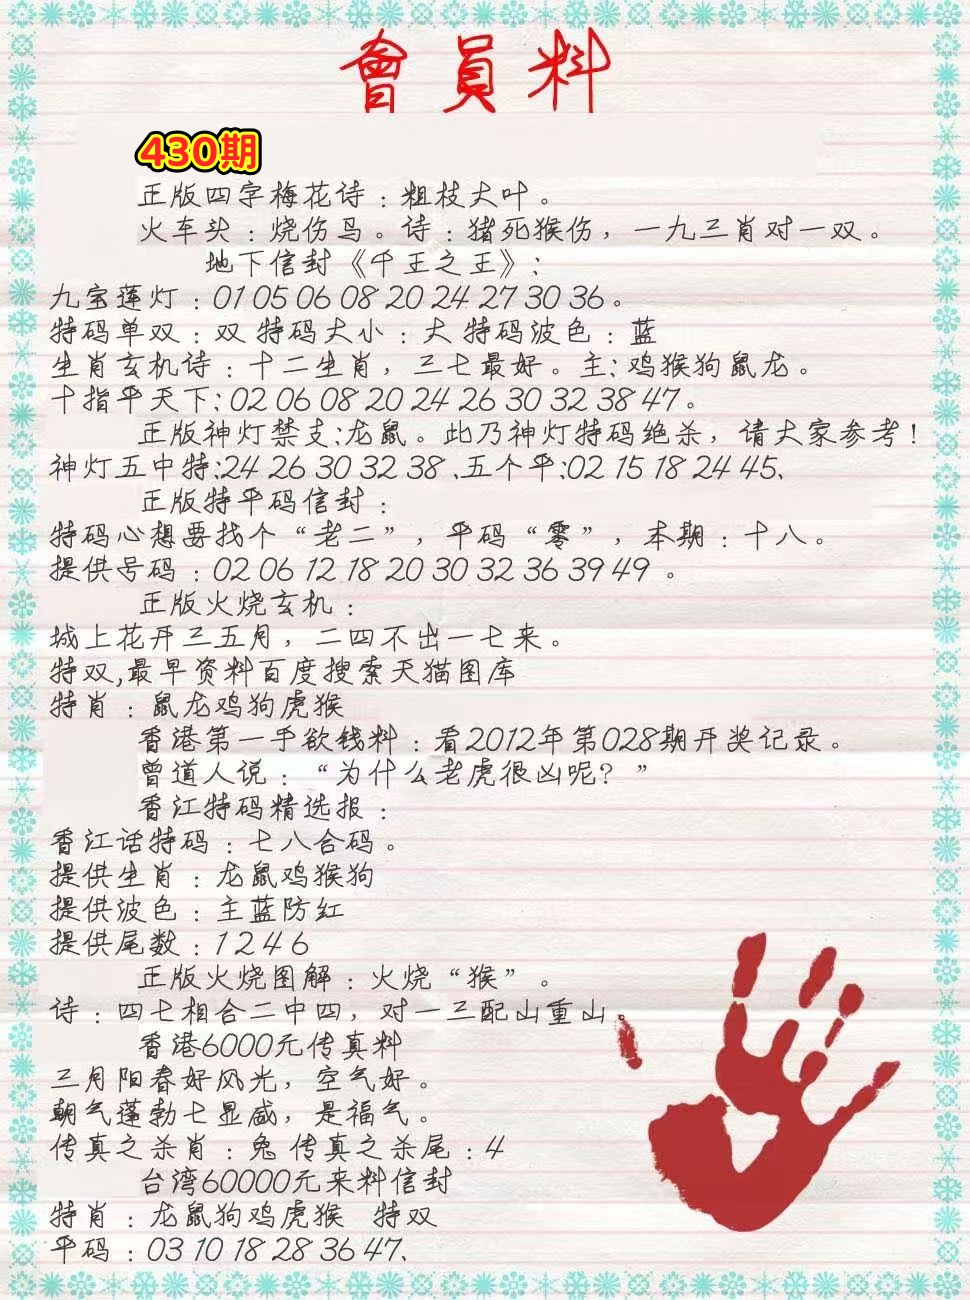 會員料
430期
正版四字梅花诗：粗枝大叶。
火车头：烧伤鸟。诗：猪死猴伤，一九三肖对一双。
地下信封《千王之王》：
九宝莲灯：01 05 06 08 20 24 27 30 36。
特码单双：双 特码大小：大 特码波色：蓝
生肖玄机诗：十二生肖，三七最好。主：鸡猴狗鼠龙。
十指平天下：02 06 08 20 24 26 30 32 38 47。
正版神灯禁支：龙鼠。此乃神灯特码绝杀，请大家参考！
神灯五中特：24 26 30 32 38 .五个平：02 15 18 24 45.
正版特平码信封：
特码心想要找个“老二”，平码“零”，本期：十八。
提供号码：02 06 12 18 20 30 32 36 39 49 。
正版火烧玄机：
城上花开三五月，二四不出一七来。
特双,最早资料百度搜索天猫图库
特肖：鼠龙鸡狗虎猴
香港第一手欲钱料：看2012年第028期开奖记录。
曾道人说：“为什么老虎很凶呢？”
香江特码精选报：
香江话特码：七八合码。
提供生肖：龙鼠鸡猴狗
提供波色：主蓝防红
提供尾数：1 2 4 6
正版火烧图解：火烧“猴”。
诗：四七相合二中四，对一三配山重山。
香港6000元传真料
三月阳春好风光，空气好。
朝气蓬勃七显威，是福气。
传真之杀肖：兔 传真之杀尾：4
台湾60000元来料信封
特肖：龙鼠狗鸡虎猴 特双
平码：03 10 18 28 36 47.